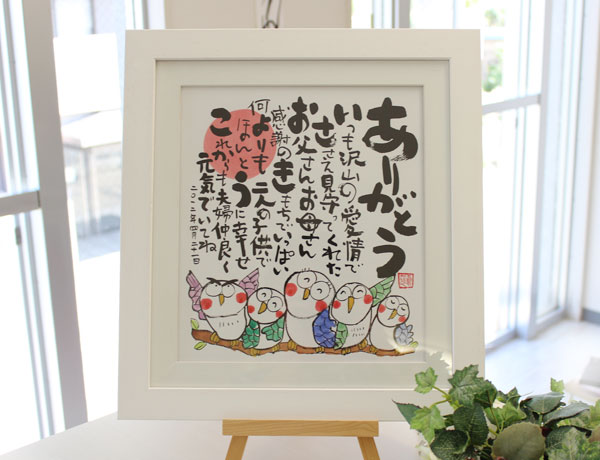 ありがとう
いつも沢山の愛情で
ささえ見守ってくれた
お父さんお母さん
感謝のきもちでいっぱい
何よりも二人の子供で
ほんとうに幸せ
これからも夫婦仲良く
元気でいてね